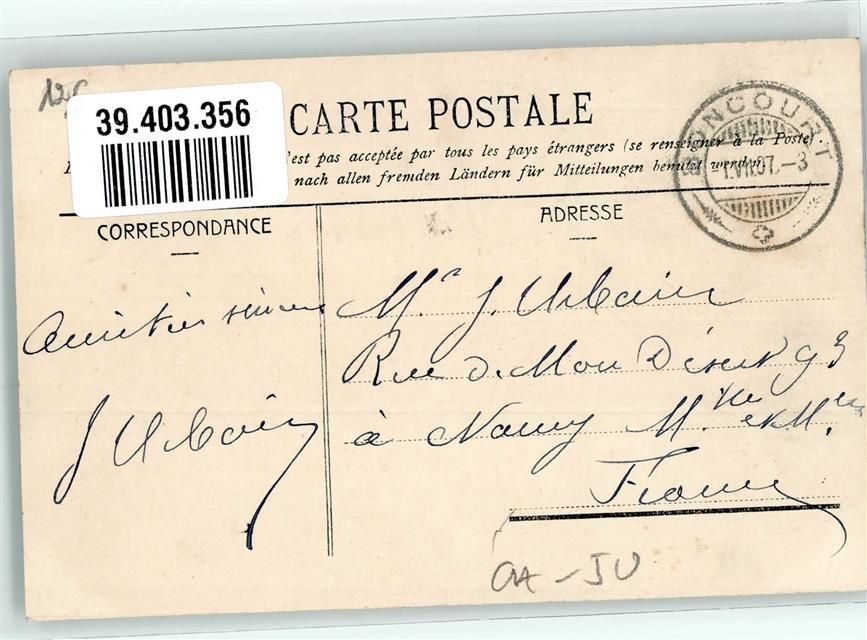 39.403.356
CARTE POSTALE
'est pas acceptée par tous les pays étrangers (se renseigner à la Poste).
nach allen fremden Ländern für Mitteilungen benutzt werden.
BONCOURT
1.VII.07.-3
CORRESPONDANCE
ADRESSE
Amitiés sincères
J Urbain
Mr J. Urbain
Rue d. Mon Désert 93
à Nancy Mthe et M.
France
CH - JU